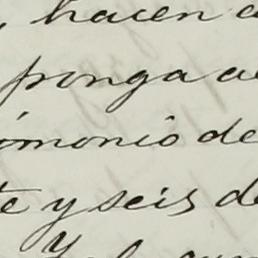 , hacen a
ponga a
imonio de
te y seis de
y